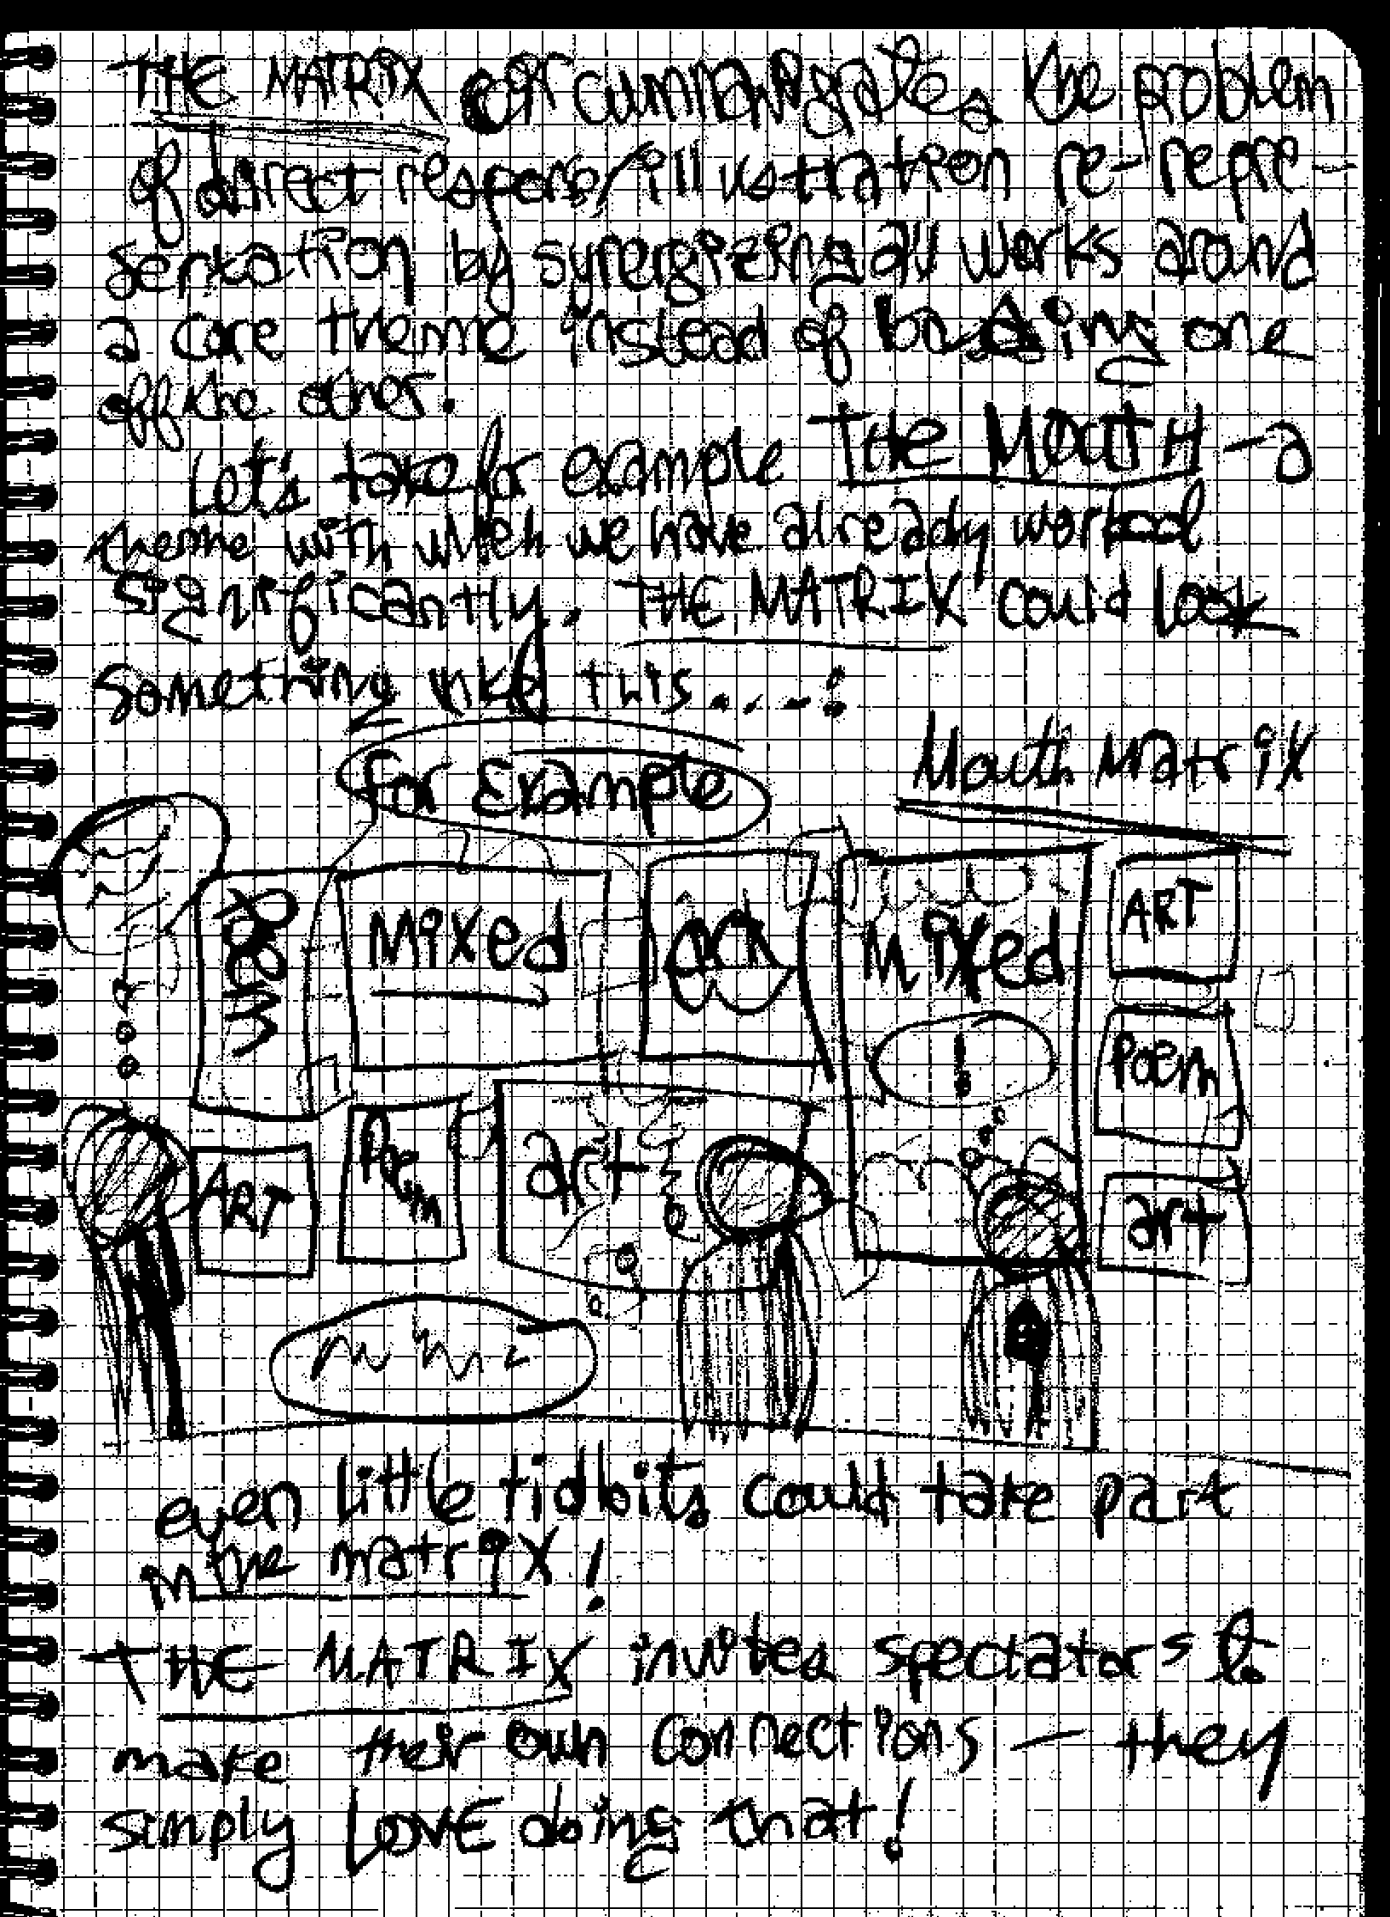 THE MATRIX circumnavigates the problem
of direct response/illustration re-repre-
sentation by synergizing all works around
a core theme instead of basing one
off the other.
Let's take for example THE MOUTH - a
theme with which we have already worked
significantly. THE MATRIX could look
something like this....:
for Example
Mouth Matrix
Mixed
mixed
ART
!
Poem
ART
Poem
art
art
even little tidbits could take part
in the matrix!
THE MATRIX invites spectators to
make their own connections - they
simply LOVE doing that!